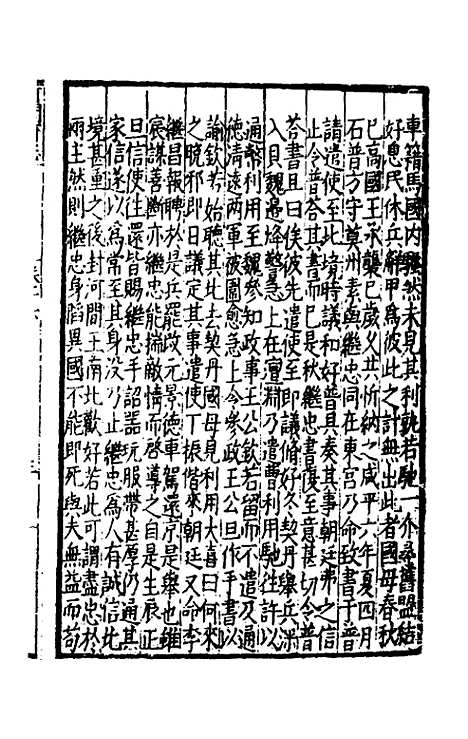 車籍馬國内騷然未見其利孰若馳一介尋舊盟結
好息民休兵解甲爲彼此之計無出此者國母春秋
已高國王承襲已歲又共忻納之咸平六年夏四月
石普方守莫州素與繼忠同在東宫乃命致書于普
請遣使至此境時議和好普具奏其事朝廷弗之信
止令普荅其書而已是秋繼忠書復至意甚切令普
荅書且曰俟彼先遣使至即議脩好冬契丹舉兵深
入貝魏邊烽警急上在澶淵乃遣曹利用馳往許以
通幣利用至魏參知政事王公欽若留而不遣及通
德清遠兩軍被圍愈急上令參政王公旦作手書以
諭欽若始聽其此去契丹國母見利用大喜曰何來
之晩邪即日議定其事遣使丁振偕來朝廷又命李
繼昌報聘於是兵罷改元景德車駕還序是舉也雖
宸謀善斷亦繼忠能揣敵情而啓導之自是生辰正
旦信使往還皆賜繼忠手詔器玩服帶甚厚乃通其
家信遂以爲常至其身没乃止繼忠爲人有誠信北
境甚重之後封河間王南北歡好若此可謂盡忠於
兩主然則繼忠身䧟異國不能即死與夫無益而苟